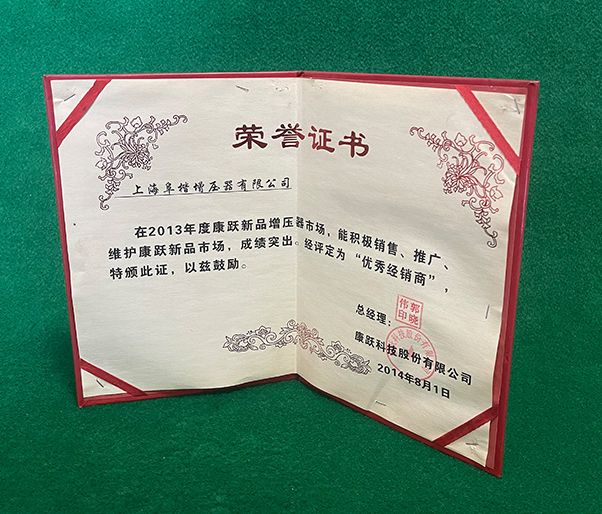 荣誉证书
上海阜楷增压器有限公司
在2013年度康跃新品增压器市场，能积极销售、推广、
维护康跃新品市场，成绩突出。经评定为“优秀经销商”，
特颁此证，以兹鼓励。
总经理：
郭晓伟印
康跃科技股份有限公司
2014年8月1日